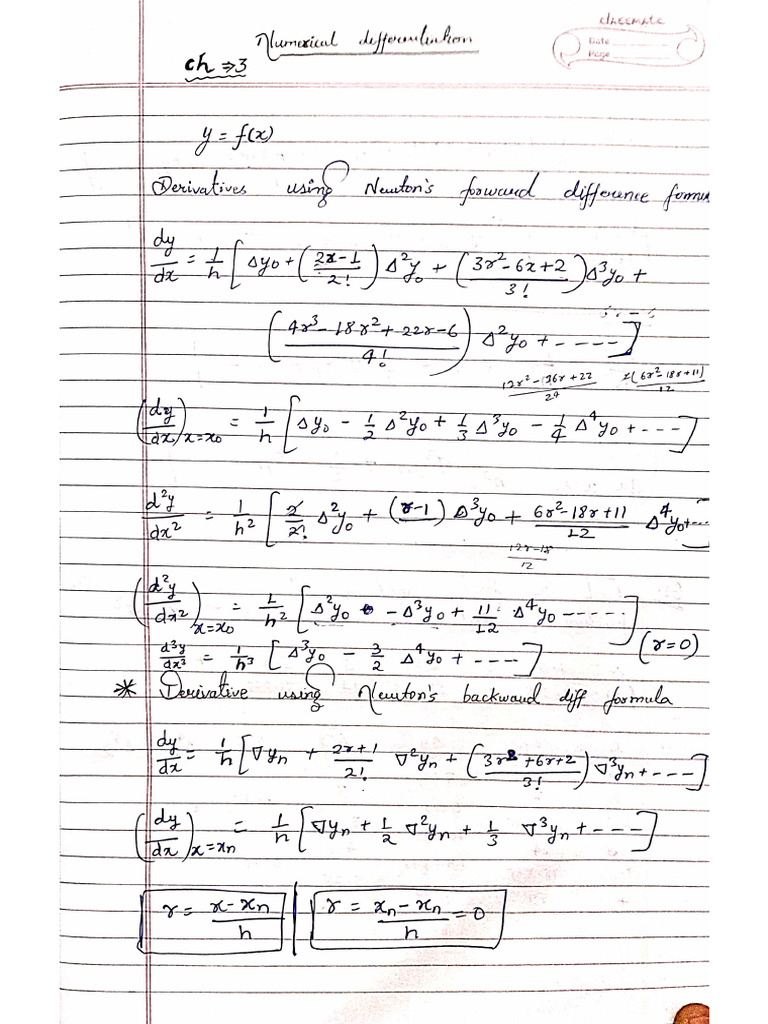 classmate
Date
Page
Numerical differentiation
ch ⇒ 3
y = f(x)
Derivatives using Newton's forward difference formu
dy/dx = 1/h [Δy0 + ((2r-1)/2!) Δ²y0 + ((3r²-6x+2)/3!) Δ³y0 +
((4r³-18r²+22r-6)/4!) Δ²y0 + -----]
(12r²-36r+22)/24 =(6r²-18r+11)/12
(dy/dx)x=x0 = 1/h [Δy0 - 1/2 Δ²y0 + 1/3 Δ³y0 - 1/4 Δ⁴y0 + ---]
d²y/dx² = 1/h² [2/2! Δ²y0 + (r-1) Δ³y0 + (6r²-18r+11)/12 Δ⁴y0+--]
(12r-18)/12
(d²y/dx²)x=x0 = 1/h² [Δ²y0 - Δ³y0 + 11/12 Δ⁴y0 ------]
(r=0)
d³y/dx³ = 1/h³ [Δ³y0 - 3/2 Δ⁴y0 + ----]
* Derivative using Newton's backward diff formula
dy/dx = 1/h [∇yn + (2r+1)/2! ∇²yn + ((3r²+6r+2)/3!) ∇³yn + ---]
(dy/dx)x=xn = 1/h [∇yn + 1/2 ∇²yn + 1/3 ∇³yn + ---]
r = (x-xn)/h | r = (xn-xn)/h = 0